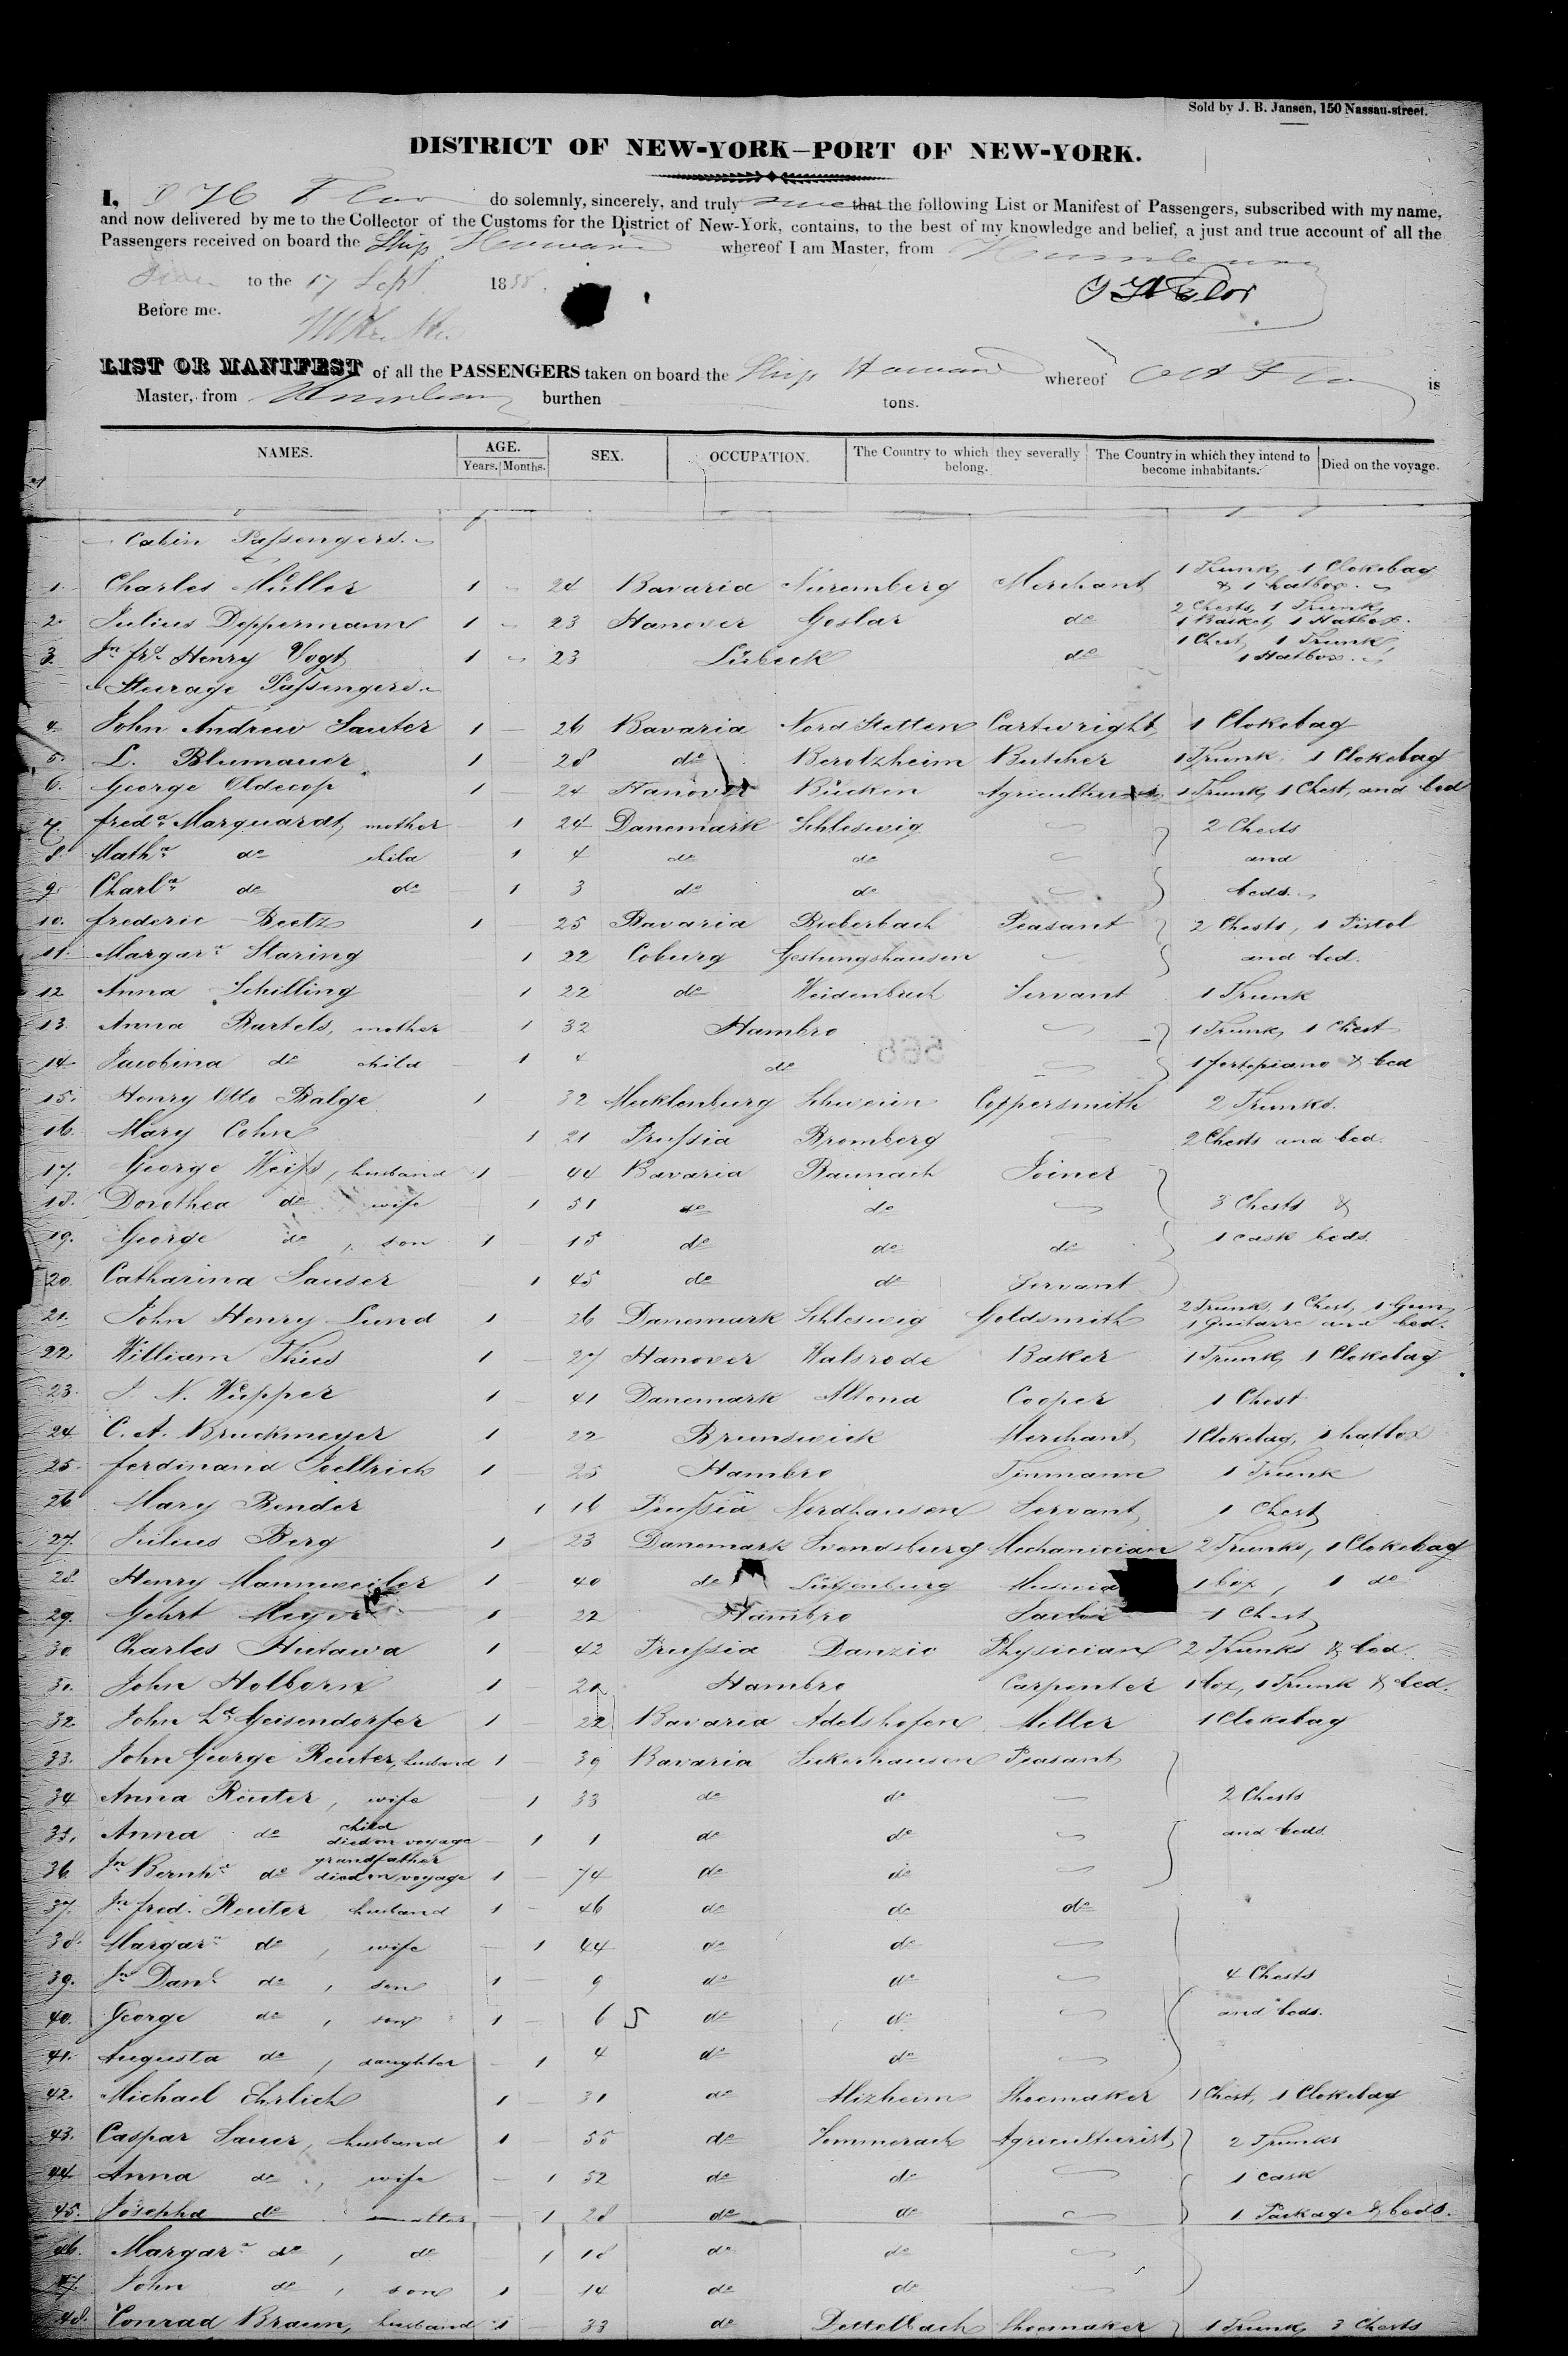 Sold by J. B. Jansen, 150 Nassau-street.
DISTRICT OF NEW-YORK—PORT OF NEW-YORK.
I, do solemnly, sincerely, and truly that the following List or Manifest of Passengers, subscribed with my name,
and now delivered by me to the Collector of the Customs for the District of New-York, contains, to the best of my knowledge and belief, a just and true account of all the
Passengers received on board the Ship Howard whereof I am Master, from
to the 17 Sept 1838.
Before me.
LIST OR MANIFEST of all the PASSENGERS taken on board the Ship Howard whereof is
Master, from burthen tons.
NAMES. AGE. Years. Months. SEX. OCCUPATION. The Country to which they severally belong. The Country in which they intend to become inhabitants. Died on the voyage.
Cabin Passengers.
1. Charles Müller 1 24 Bavaria Nuremberg Merchant 1 Trunk, 1 Clokebag & 1 hatbox.
2. Julius Deppermann 1 23 Hanover Goslar do 2 Chests, 1 Trunk, 1 Basket, 1 Hatbox.
3. Jn. frd. Henry Vogt 1 23 Lübeck do 1 Chest, 1 Trunk, 1 Hatbox.
Steurage Passengers.
4. John Andrew Sauter 1 26 Bavaria Nordstetten Cartwright 1 Clokebag
5. L. Blumauer 1 28 do Berolzheim Butcher 1 Trunk, 1 Clokebag
6. George Oldecop 1 24 Hanover Bücken 1 Trunk, 1 Chest, and bed
7. freda. Marquardt, mother 1 24 Danemark Schleswig 2 Chests
8. Matha. do child 1 4 do do and
9. Charla. do do 1 3 do do beds.
10. frederic Beetz 1 25 Bavaria Bieberbach Peasant 2 Chests, 1 Pistol
11. Margara. Staring 1 22 Coburg Gestungshausen and bed.
12. Anna Schilling 1 22 do Weidenbach Servant 1 Trunk
13. Anna Bartels, mother 1 32 Hambro 1 Trunk, 1 Chest
14. Jacobina do child 1 4 do 1 fortepiano & bed
15. Henry Otto Balge 1 32 Mecklenburg Schwerin Coppersmith 2 Trunks.
16. Mary Cohn 1 21 Prussia Bromberg 2 Chests and bed.
17. George Weiss, husband 1 44 Bavaria Baunach Joiner
18. Dorothea do wife 1 51 do do 3 Chests &
19. George do, son 1 15 do do do 1 cask beds.
20. Catharina Sauser 1 45 do do Servant
21. John Henry Lund 1 26 Danemark Schleswig Goldsmith 2 Trunks, 1 Chest, 1 Gun, 1 Guitarre and bed.
22. William Thies 1 27 Hanover Walsrode Baker 1 Trunk, 1 Clokebag
23. J. N. Wüpper 1 41 Danemark Altona Cooper 1 Chest
24. C. A. Bruckmeyer 1 22 Brunswick Merchant 1 Clokebag, 1 hatbox
25. ferdinand 1 25 Hambro Tinmann 1 Trunk
26. Mary Bender 1 16 Prussia Nordhausen Servant 1 Chest
27. Julius Berg 1 23 Danemark Svendsburg Mechanician 2 Trunks, 1 Clokebag
28. Henry Mannweiler 1 40 do Lütjenburg 1 box, 1 do
29. Gehrt Meyer 1 22 Hambro 1 Chest
30. Charles Hutawa 1 42 Prussia Danzic Physician 2 Trunks & bed.
31. John Holborn 1 Hambro Carpenter 1 box, 1 Trunk & bed.
32. John Geisendorfer 1 22 Bavaria Adelshofen Miller 1 Clokebag
33. John George Reuter, husband 1 39 Bavaria Sickershausen Peasant
34. Anna Reuter, wife 1 33 do do 2 Chests
35. Anna do child died on voyage 1 1 do do and beds.
36. Jn. Bernhd. do grandfather died on voyage 1 74 do do
37. Jn. fred. Reuter, husband 1 46 do do do
38. Margara. do, wife 1 44 do do
39. Jn. Danl. do, son 1 9 do do 4 Chests
40. George do, son 1 6 do do and beds.
41. Augusta do, daughter 1 4 do do
42. Michael Ehrlich 1 31 do Alizheim Shoemaker 1 Chest, 1 Clokebag
43. Caspar Sauer, husband 1 55 do Sommerach Agriculturist 2 Trunks
44. Anna do, wife 1 52 do do 1 cask
45. Josepha do 1 28 do do 1 Package & beds.
46. Margara. do, do 1 18 do do
47. John do, son 1 14 do do
48. Conrad Braun, husband 1 33 do Dettelbach Shoemaker 1 Trunk, 3 Chests